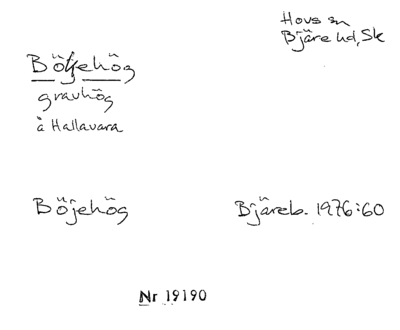 Hovs sn
Bjäre hd, Sk
Böljehög
gravhög
å Hallavara
Böjehög
Bjäreb. 1976:60
Nr 19190